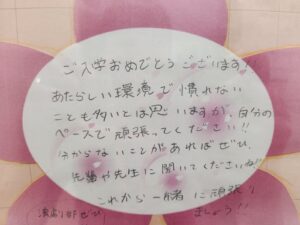 ご入学おめでとうございます!
あたらしい環境で慣れない
ことも多いとは思いますが、自分の
ペースで頑張ってください!!
分からないことがあればぜひ、
先輩や先生に聞いてくださいね!!
これから一緒に頑張り
ましょう!!
演劇部ぜひ